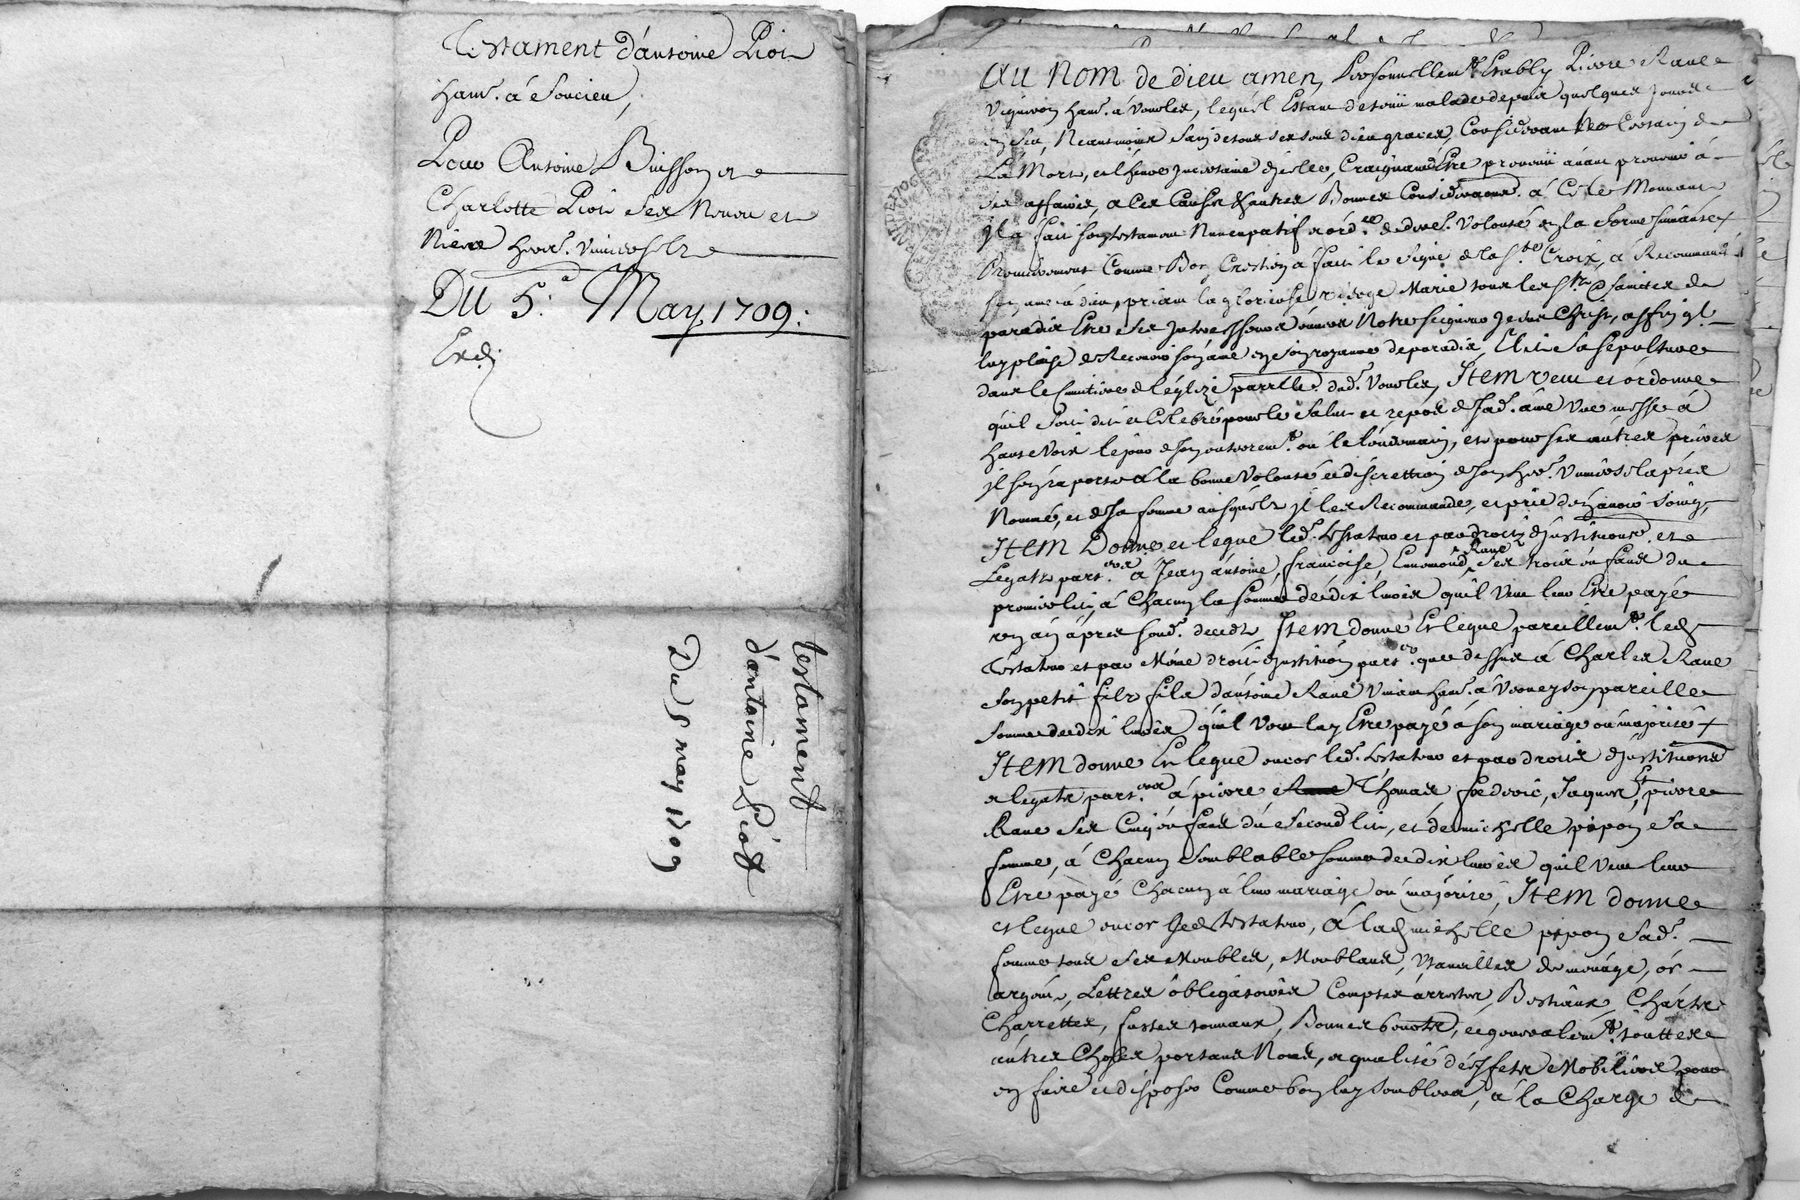 Testament d'antoine Piot
habt. à Soucieu,
Pour Antoine Buisson et
Charlotte Piot ses Neveu et
Niece hers. universels
Du 5e. May 1709:
Exd.
Testament
d'antoine Piot
Du 5 may 1709
Au Nom de dieu amen, Personnellemt Estably Pierre Rave
Vigneron habt. à Vourles, lequel Estant detenu malade depuis quelques jours
en son, Neantmoins sain de tous ses sens dieu graces, Considerant la Certain de
La Mort, et l'heure incertaine d'icelle, Craignant Estre prevenu avant pourvoir à
ses affaires, a ces Causes & autres Bonnes Considerations. à Ces Mouvant
Il à fait son testament Nuncupatif et ordre. de dere. Volonté en la forme suivante
Premierement Comme Bon Crestien à fait le signe de la Ste. Croix, à Recommandé
son ame à dieu, priant la glorieuse vierge Marie tous les Sts & saintes de
paradis Estre ses intercesseurs envers Notre Seigneur Jesus Christ, affin ql
luy plaise de Recevoir son ame en son royaume de paradis, Elit sa sepulture
dans le Cimitiere de l'églize parrlle. dud. Vourles, Item veut et ordonne
qu'il soit dit et Celebré pour le Salut et repos de sad. ame Une messe à
haute Voix le jour de son enterremt. ou le lendemain, et pour ses autres prieres
il s'en raporte à la bonne Volonté et discrettion de son her. Universel après
Nommé, et de sa femme ausquels il les Recommande, et prie d'en avoir soing,
Item Donne et legue led. testateur et par droit d'institutions et
Legats parters. à Jean antoine, francoise, Ennemond Rave ses trois enfans du
premier lit, à Chacun la somme de dix livres qu'il Veut leur Estre payé
un an après sond. decedz, Item donne Et legue pareillemt. led.
testateur et par Même droit d'institution parter. que dessus à Charles Rave
son petit fils fils d'antoine Rave Vivant habt. à Verneyson pareille
somme de dix livres qu'il Veut luy Estre payé à son mariage ou majorité
Item donne Et legue encor led. testateur et par droit d'institutions
et legats parters. à pierre Thomas frederic, Jaques, Et pierre
Rave ses Cinq enfans du second lit, et de michelle pipon sa
femme, à Chacun semblable somme de dix livres qu'il Veut leur
Estre payé Chacun à leur mariage ou majorité, Item donne
et legue encor led. testateur, à lad. michelle pipon sad.
femme tous ses Meubles, Meublans, Utancilles de menage, or
argent, Lettres obligatoires Comptes arrestés, Bestiaux, Chars
Charrettes, fustes tonnaux, Bonnes bouttes, et generalemt. touttes
autres Choses portans Noms, et qualité d'effets Mobiliers pour
en faire et disposer Comme bon luy semblera, à la Charge de